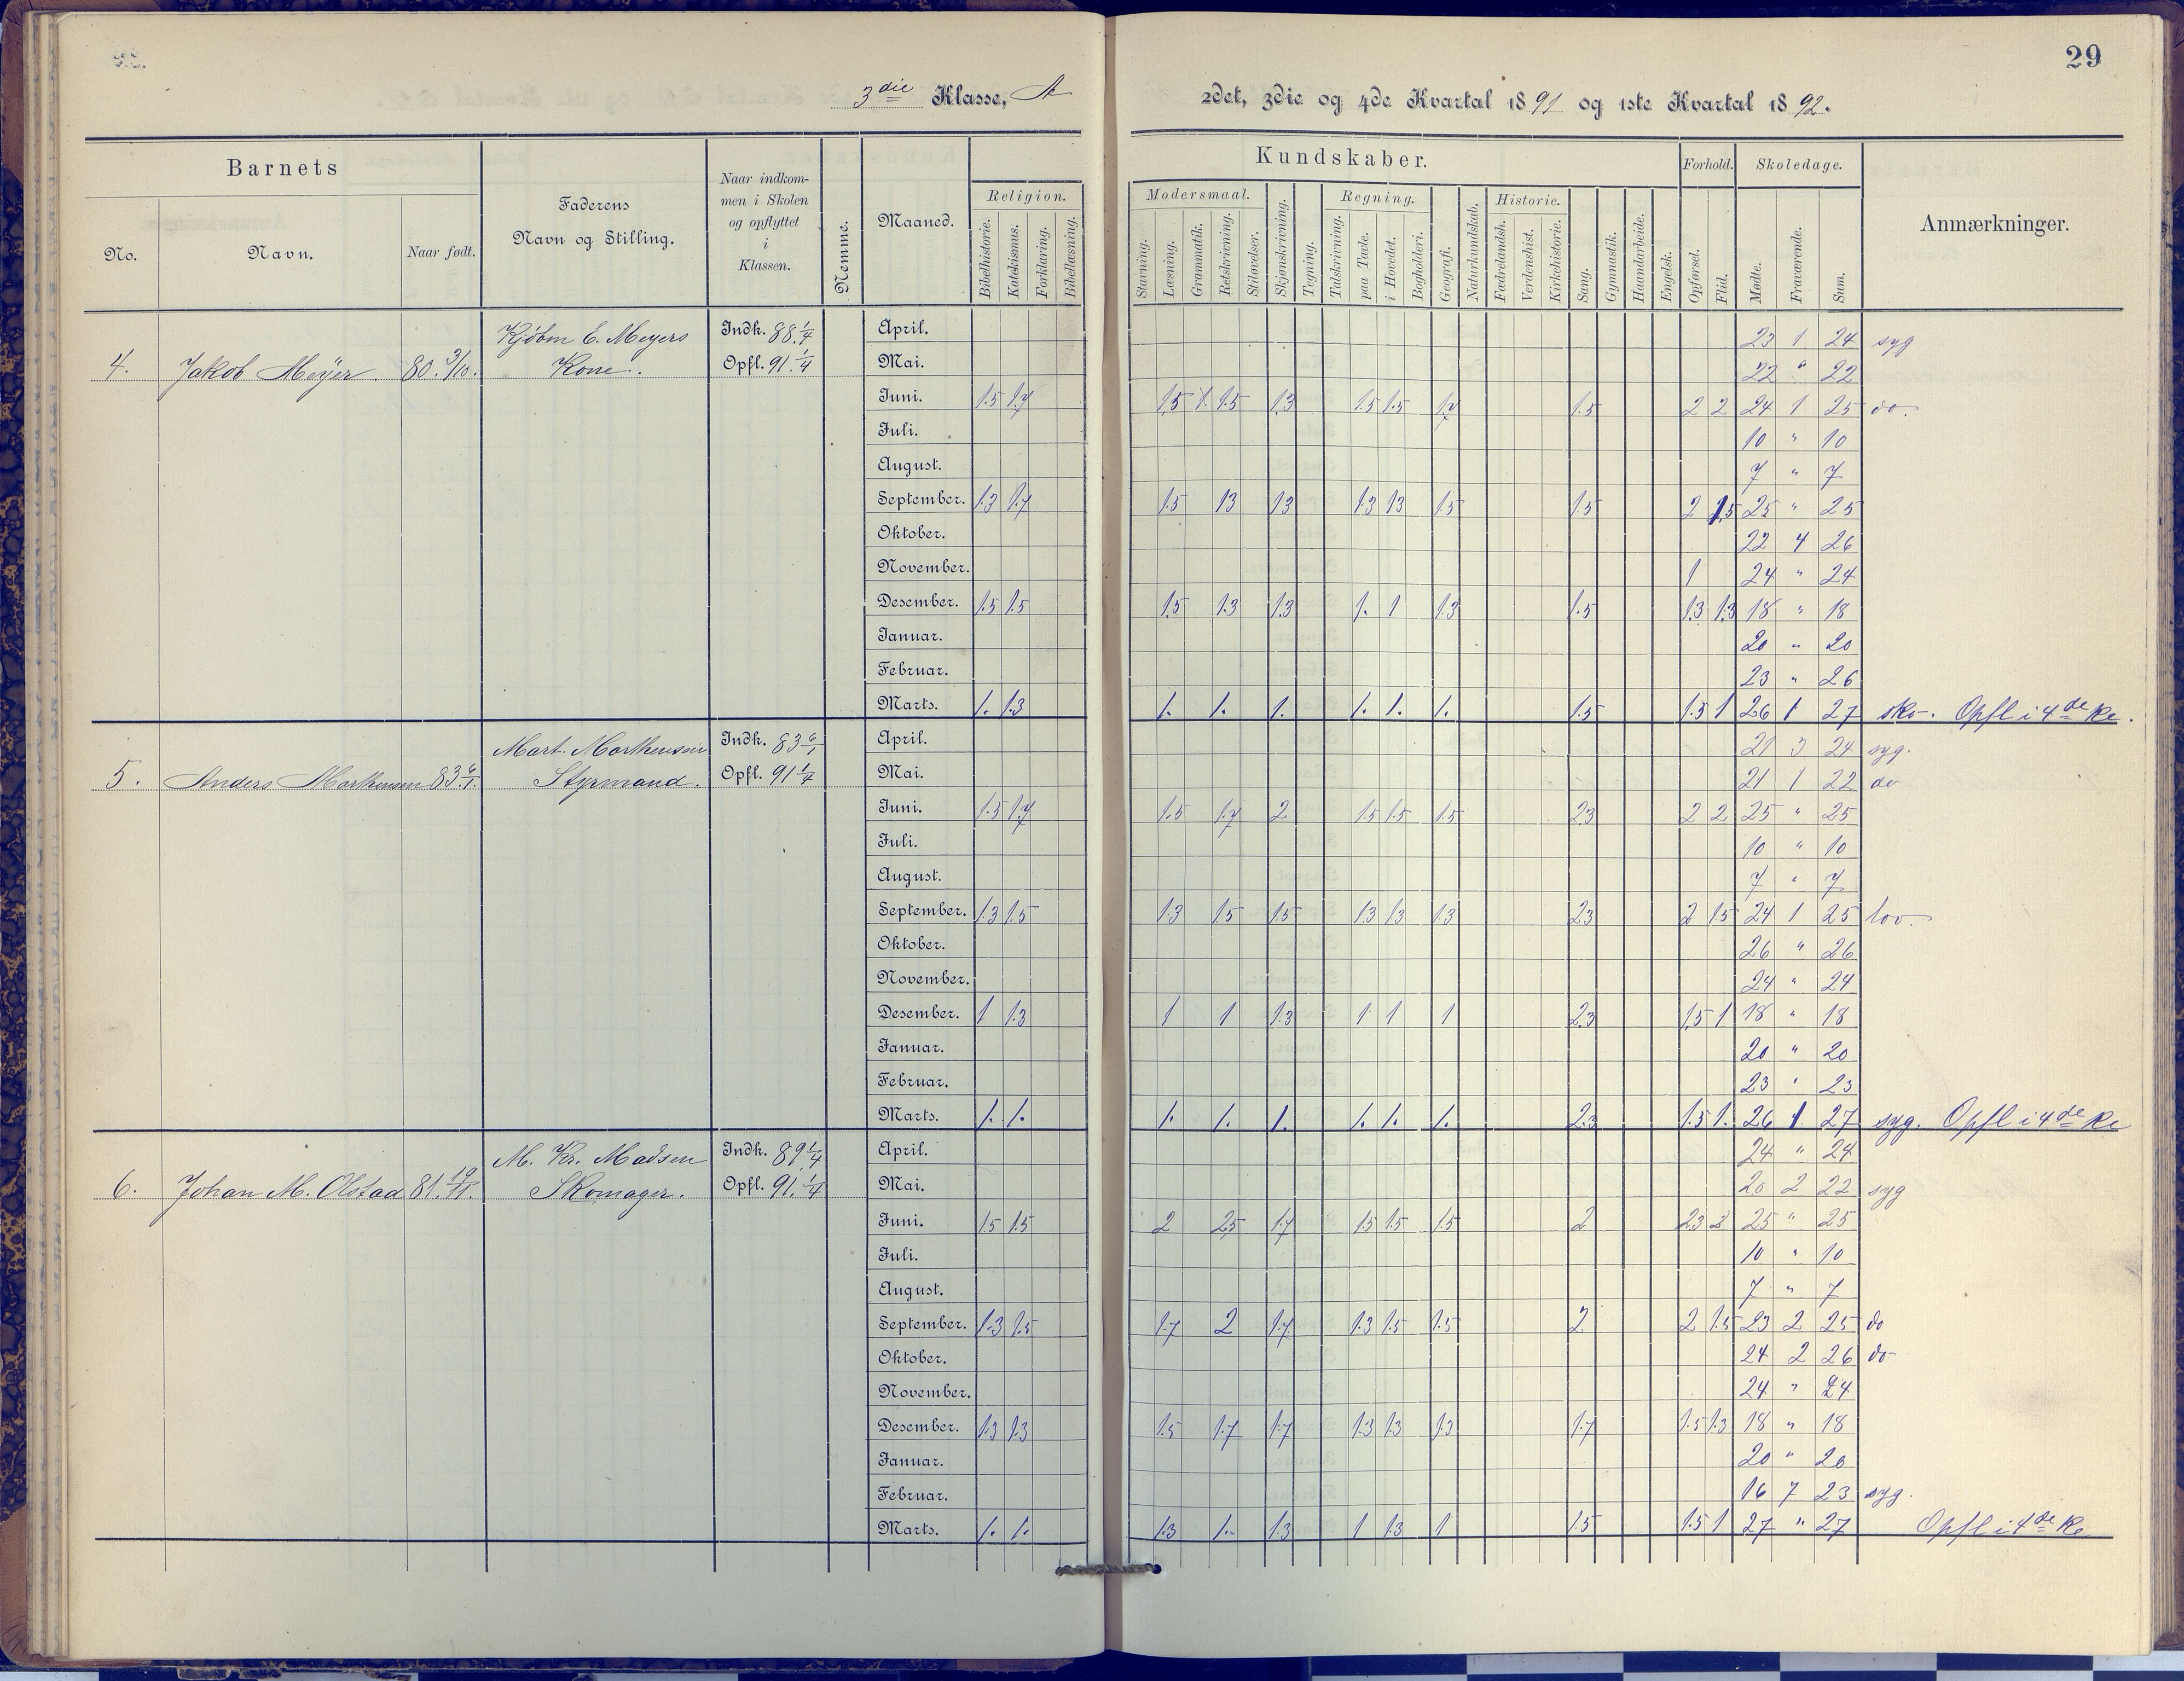 29
3die Klasse, A
2det, 3die og 4de Kvartal 1891 og 1ste Kvartal 1892.
Barnets
No.
Navn.
Naar født.
Faderens
Navn og Stilling.
Naar indkom-
men i Skolen
og opflyttet
i
Klassen.
Nemme.
Maaned.
Kundskaber.
Religion.
Bibelhistorie.
Katekismus.
Forklaring.
Bibellæsning.
Modersmaal.
Stavning.
Læsning.
Grammatik.
Retskrivning.
Stiløvelser.
Skjønskrivning.
Tegning.
Regning.
Talskrivning.
paa Tavle.
i Hovedet.
Bogholderi.
Geografi.
Naturkundskab.
Historie.
Fædrelandsh.
Verdenshist.
Kirkehistorie.
Sang.
Gymnastik.
Haandarbeide.
Engelsk.
Forhold.
Opførsel.
Flid.
Skoledage.
Mødte.
Fraværende.
Sum.
Anmærkninger.
4. Jakob Meyer. 80. 3/10. Kjøbm E. Meyers Kone. Indk. 88 1/4 Opfl. 91. 1/4
April. 23 1 24 syg
Mai. 22 " 22
Juni. 1.5 1.7 1.5 1. 1.5 1.3 1.5 1.5 1.7 1.5 2 2 24 1 25 do.
Juli. 10 " 10
August. 7 " 7
September. 1.3 1.7 1.5 13 13 1.3 13 1.5 1.5 2 1.5 25 " 25
Oktober. 22 4 26
November. 1 24 " 24
Desember. 1.5 1.5 1.5 1.3 1.3 1. 1 1.3 1.5 1.3 1.3 18 " 18
Januar. 20 " 20
Februar. 23 " 26
Marts. 1. 1.3 1. 1. 1. 1. 1. 1. 1.5 1.5 1 26 1 27 sko. Opfl i 4de Kl.
5. Anders Marthinsen 83 6/1. Mart. Marthinsen Styrmand. Indk. 83 6/1 Opfl. 91 1/4
April. 21 3 24 syg.
Mai. 21 1 22 do
Juni. 1.5 1.7 1.5 1.7 2 1.5 1.5 1.5 23 2 2 25 " 25
Juli. 10 " 10
August. 7 " 7
September. 1.3 1.5 1.3 1.5 1.5 1.3 1.3 1.3 23 2 15 24 1 25 lov.
Oktober. 26 " 26
November. 24 " 24
Desember. 1 1.3 1 1 1.3 1 1 1 2.3 1.5 1 18 " 18
Januar. 20 " 20
Februar. 23 " 23
Marts. 1. 1. 1. 1. 1. 1. 1. 1. 2.3 1.5 1. 26 1 27 syg. Opfl i 4de Kl
6. Johan M. Olstad 81. 19/11. M. Kr. Madsen Skomager. Indk. 89 1/4 Opfl. 91. 1/4
April. 24 " 24
Mai. 20 2 22 syg
Juni. 15 1.5 2 25 1.7 1.5 1.5 1.5 2 23 2 25 " 25
Juli. 10 " 10
August. 7 " 7
September. 1.3 1.5 1.7 2 1.7 1.3 1.5 1.5 2 2 1.5 23 2 25 do
Oktober. 24 2 26 do
November. 24 " 24
Desember. 1.3 1.3 1.5 1.7 1.7 1.3 1.3 1.3 1.7 1.5 1.3 18 " 18
Januar. 20 " 20
Februar. 16 7 23 syg.
Marts. 1. 1. 1.3 1. 1.3 1 1.3 1 1.5 1.5 1 27 " 27 Opfl i 4de Kl